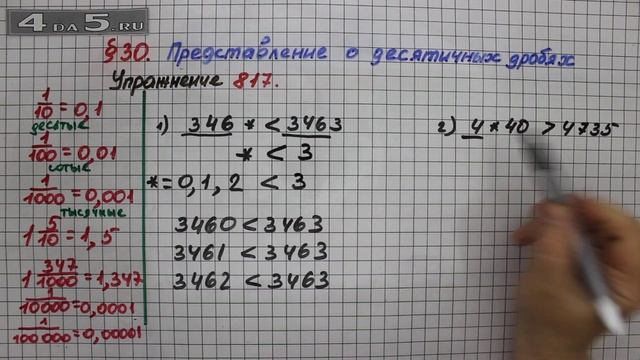 4DA5.RU
§30. Представление о десятичных дробях
Упражнение 817.
1/10 = 0,1
десятые
1/100 = 0,01
сотые
1/1000 = 0,001
тысячные
1 5/10 = 1,5
1 347/1000 = 1,347
1/10000 = 0,0001
1/100 000 = 0,00001
1) 346 * < 3463
* < 3
* = 0, 1, 2 < 3
3460 < 3463
3461 < 3463
3462 < 3463
2) 4 * 40 > 4735